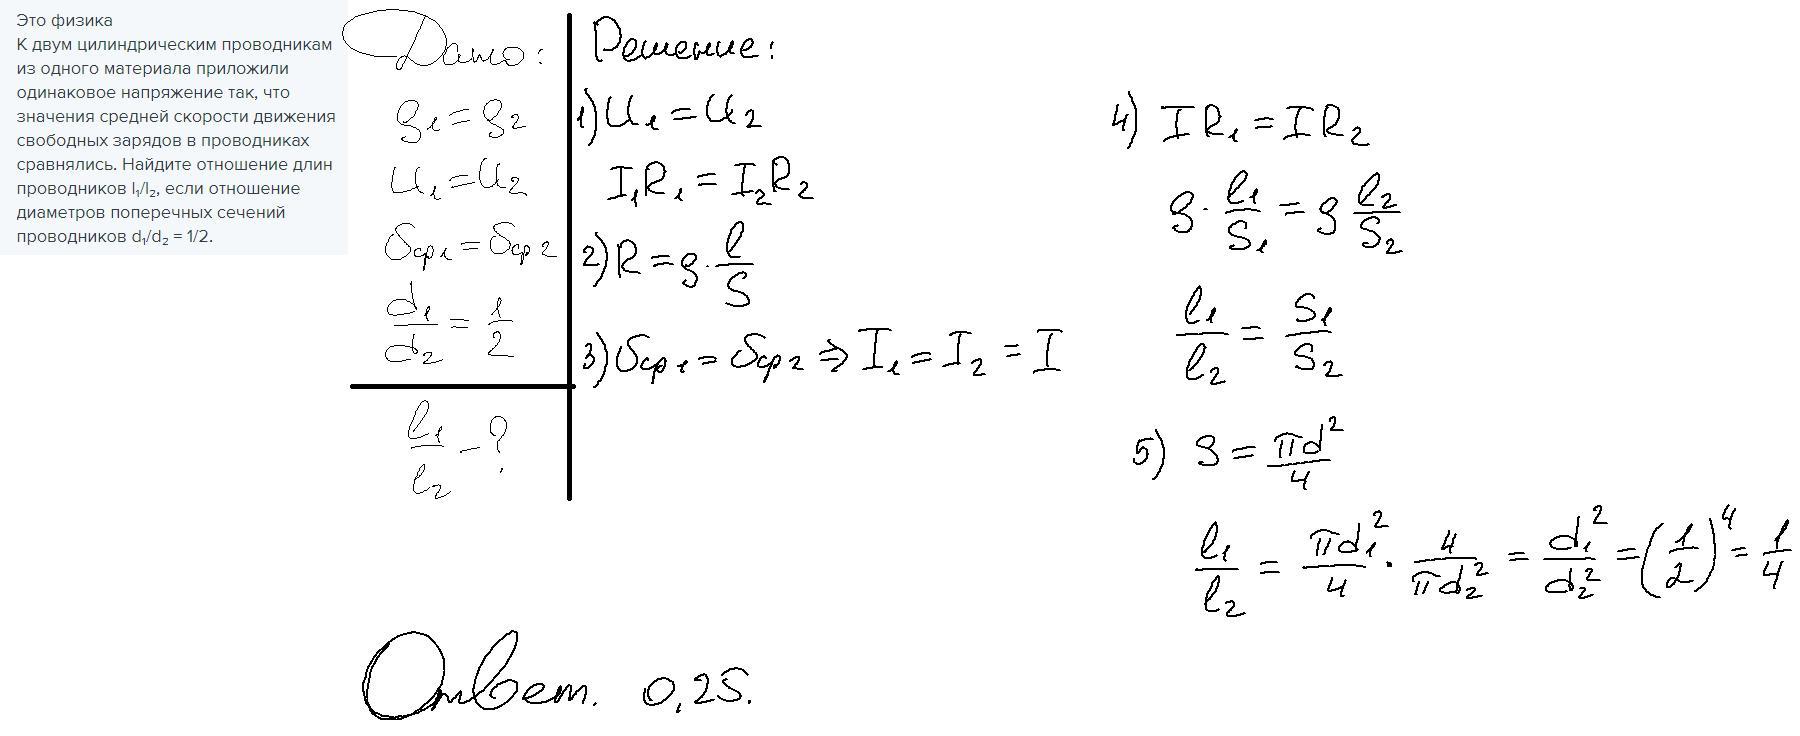 Это физика
К двум цилиндрическим проводникам
из одного материала приложили
одинаковое напряжение так, что
значения средней скорости движения
свободных зарядов в проводниках
сравнялись. Найдите отношение длин
проводников l₁/l₂, если отношение
диаметров поперечных сечений
проводников d₁/d₂ = 1/2.
Дано:
ρ₁ = ρ₂
U₁ = U₂
υср₁ = υср₂
d₁/d₂ = 1/2
l₁/l₂ - ?
Решение:
1) U₁ = U₂
I₁R₁ = I₂R₂
2) R = ρ · l/S
3) υср₁ = υср₂ ⇒ I₁ = I₂ = I
4) IR₁ = IR₂
ρ · l₁/S₁ = ρ l₂/S₂
l₁/l₂ = S₁/S₂
5) S = πd²/4
l₁/l₂ = πd₁²/4 · 4/πd₂² = d₁²/d₂² = (1/2)⁴ = 1/4
Ответ. 0,25.